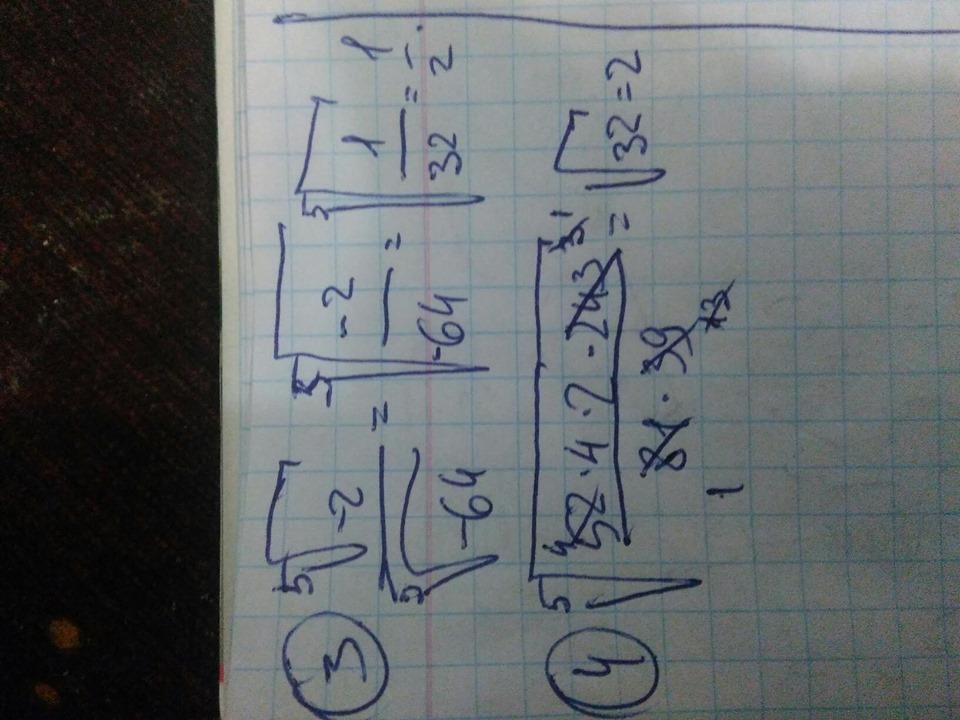 ③ ⁵√-2 / ⁵√-64 = ⁵√(-2 / -64) = ⁵√(1 / 32) = 1 / 2.
④ ⁵√(52 4 · 4 · 2 · 243 3 1 / 81 1 · 39 13) = √32 = 2